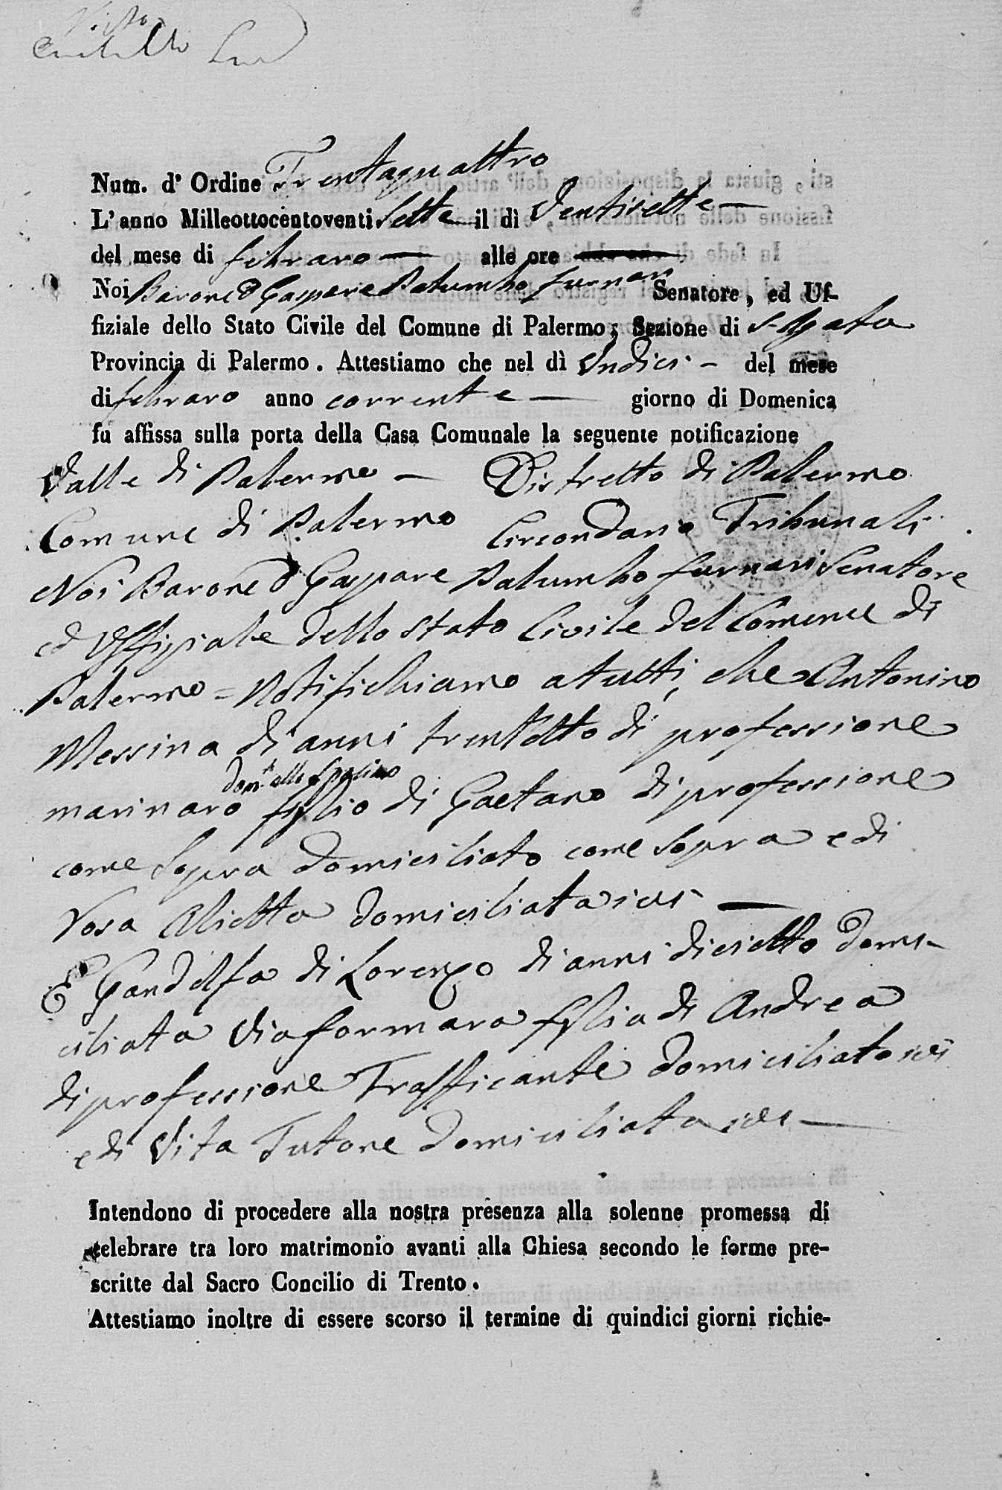 Num. d' Ordine Trentaquattro
L'anno Milleottocentoventi Sette il dì Ventisette
del mese di febraro alle ore
Noi Barone D Gaspare Palumbo furnari Senatore, ed Uf-
fiziale dello Stato Civile del Comune di Palermo; Sezione di S. Agata
Provincia di Palermo. Attestiamo che nel dì Undici - del mese
di febraro anno corrente giorno di Domenica
fu affissa sulla porta della Casa Comunale la seguente notificazione
Valle di Palermo — Distretto di Palermo
Comune di Palermo Circondario Tribunali
Noi Barone D Gaspare Palumbo furnari Senatore
ed Uffiziale dello Stato Civile del Comune di
Palermo = Notifichiamo a tutti, che Antonino
Messina di anni trentotto di professione
marinaro figlio di Gaetano di professione
come Sopra domiciliato come Sopra e di
Rosa domiciliata ivi —
E Gandolfa di Lorenzo di anni dieciotto domi-
ciliata Via formara figlia di Andrea
di professione Trafficante domiciliato ivi
e di Vita Tutone domiciliata ivi —
Intendono di procedere alla nostra presenza alla solenne promessa di
celebrare tra loro matrimonio avanti alla Chiesa secondo le forme pre-
scritte dal Sacro Concilio di Trento.
Attestiamo inoltre di essere scorso il termine di quindici giorni richie-